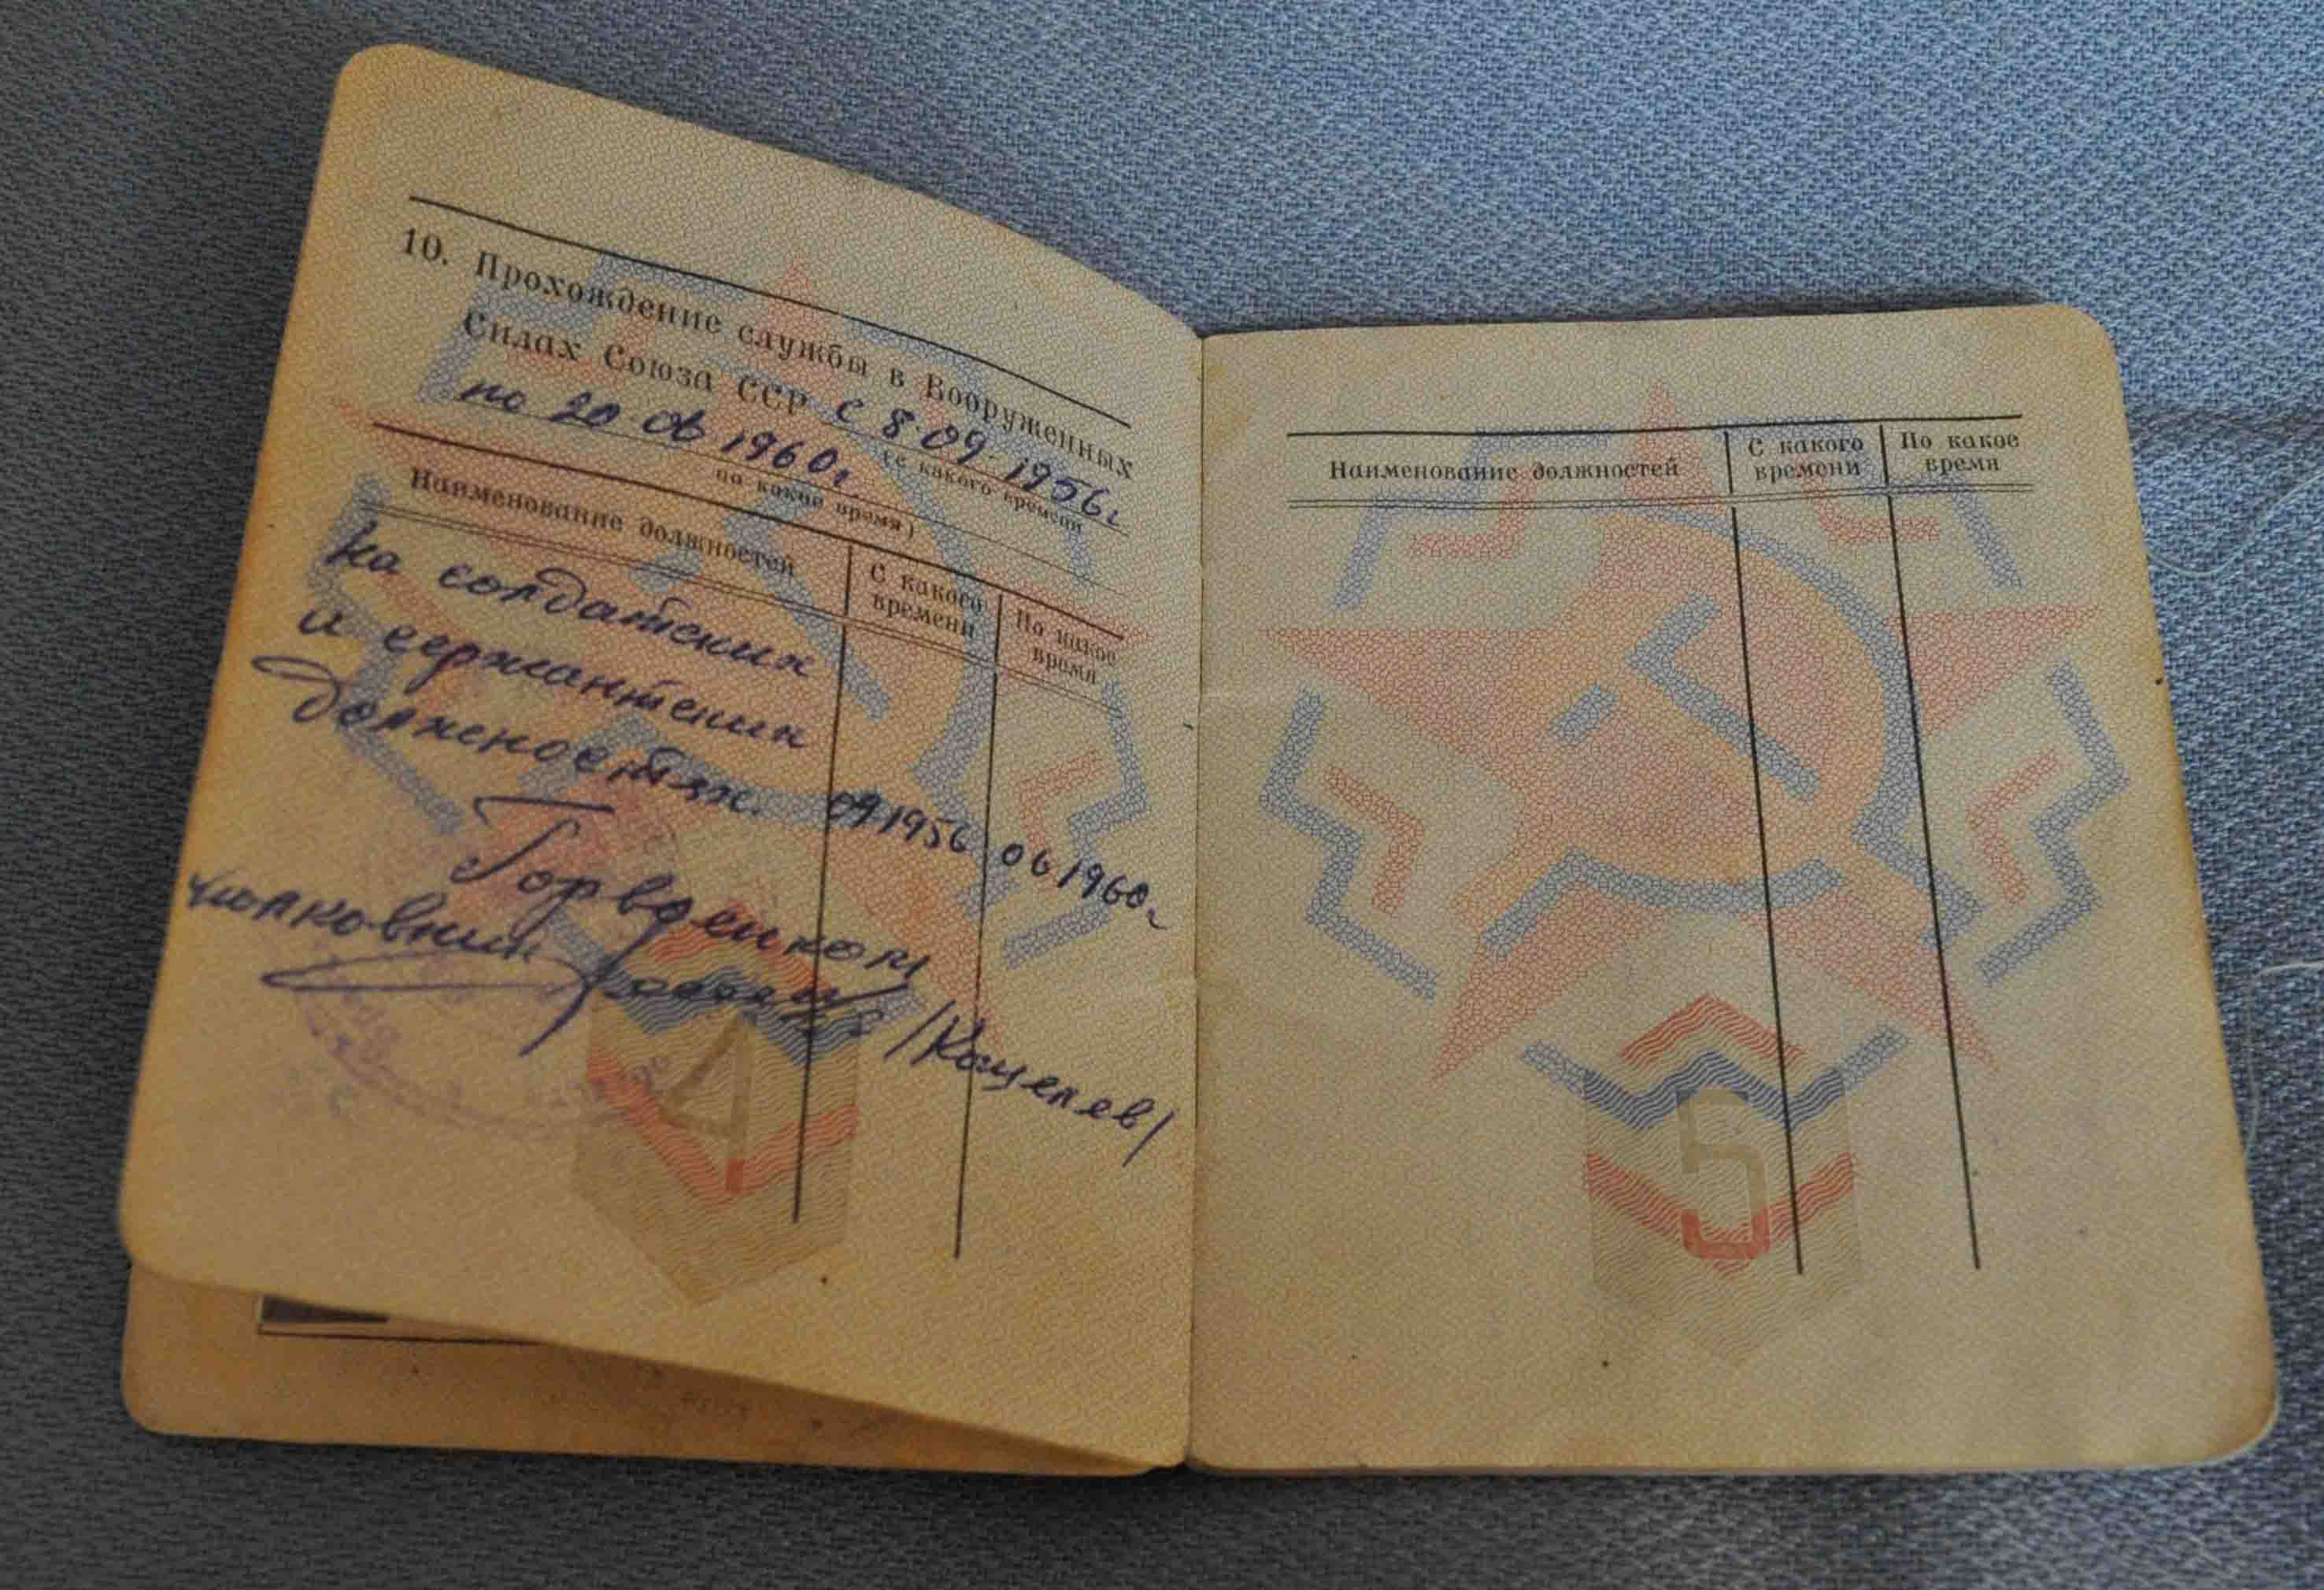 10. Прохождение службы в Вооруженных
Силах Союза ССР с 8.09.1956г
(с какого времени
по 20.06 1960г.
по какое время)
Наименование должностей
С какого времени
По какое время
на солдатских
и сержантских
должностях. 09.1956 06.1960г
Горвоенком
полковник /Кощелев/
4
Наименование должностей
С какого времени
По какое время
5